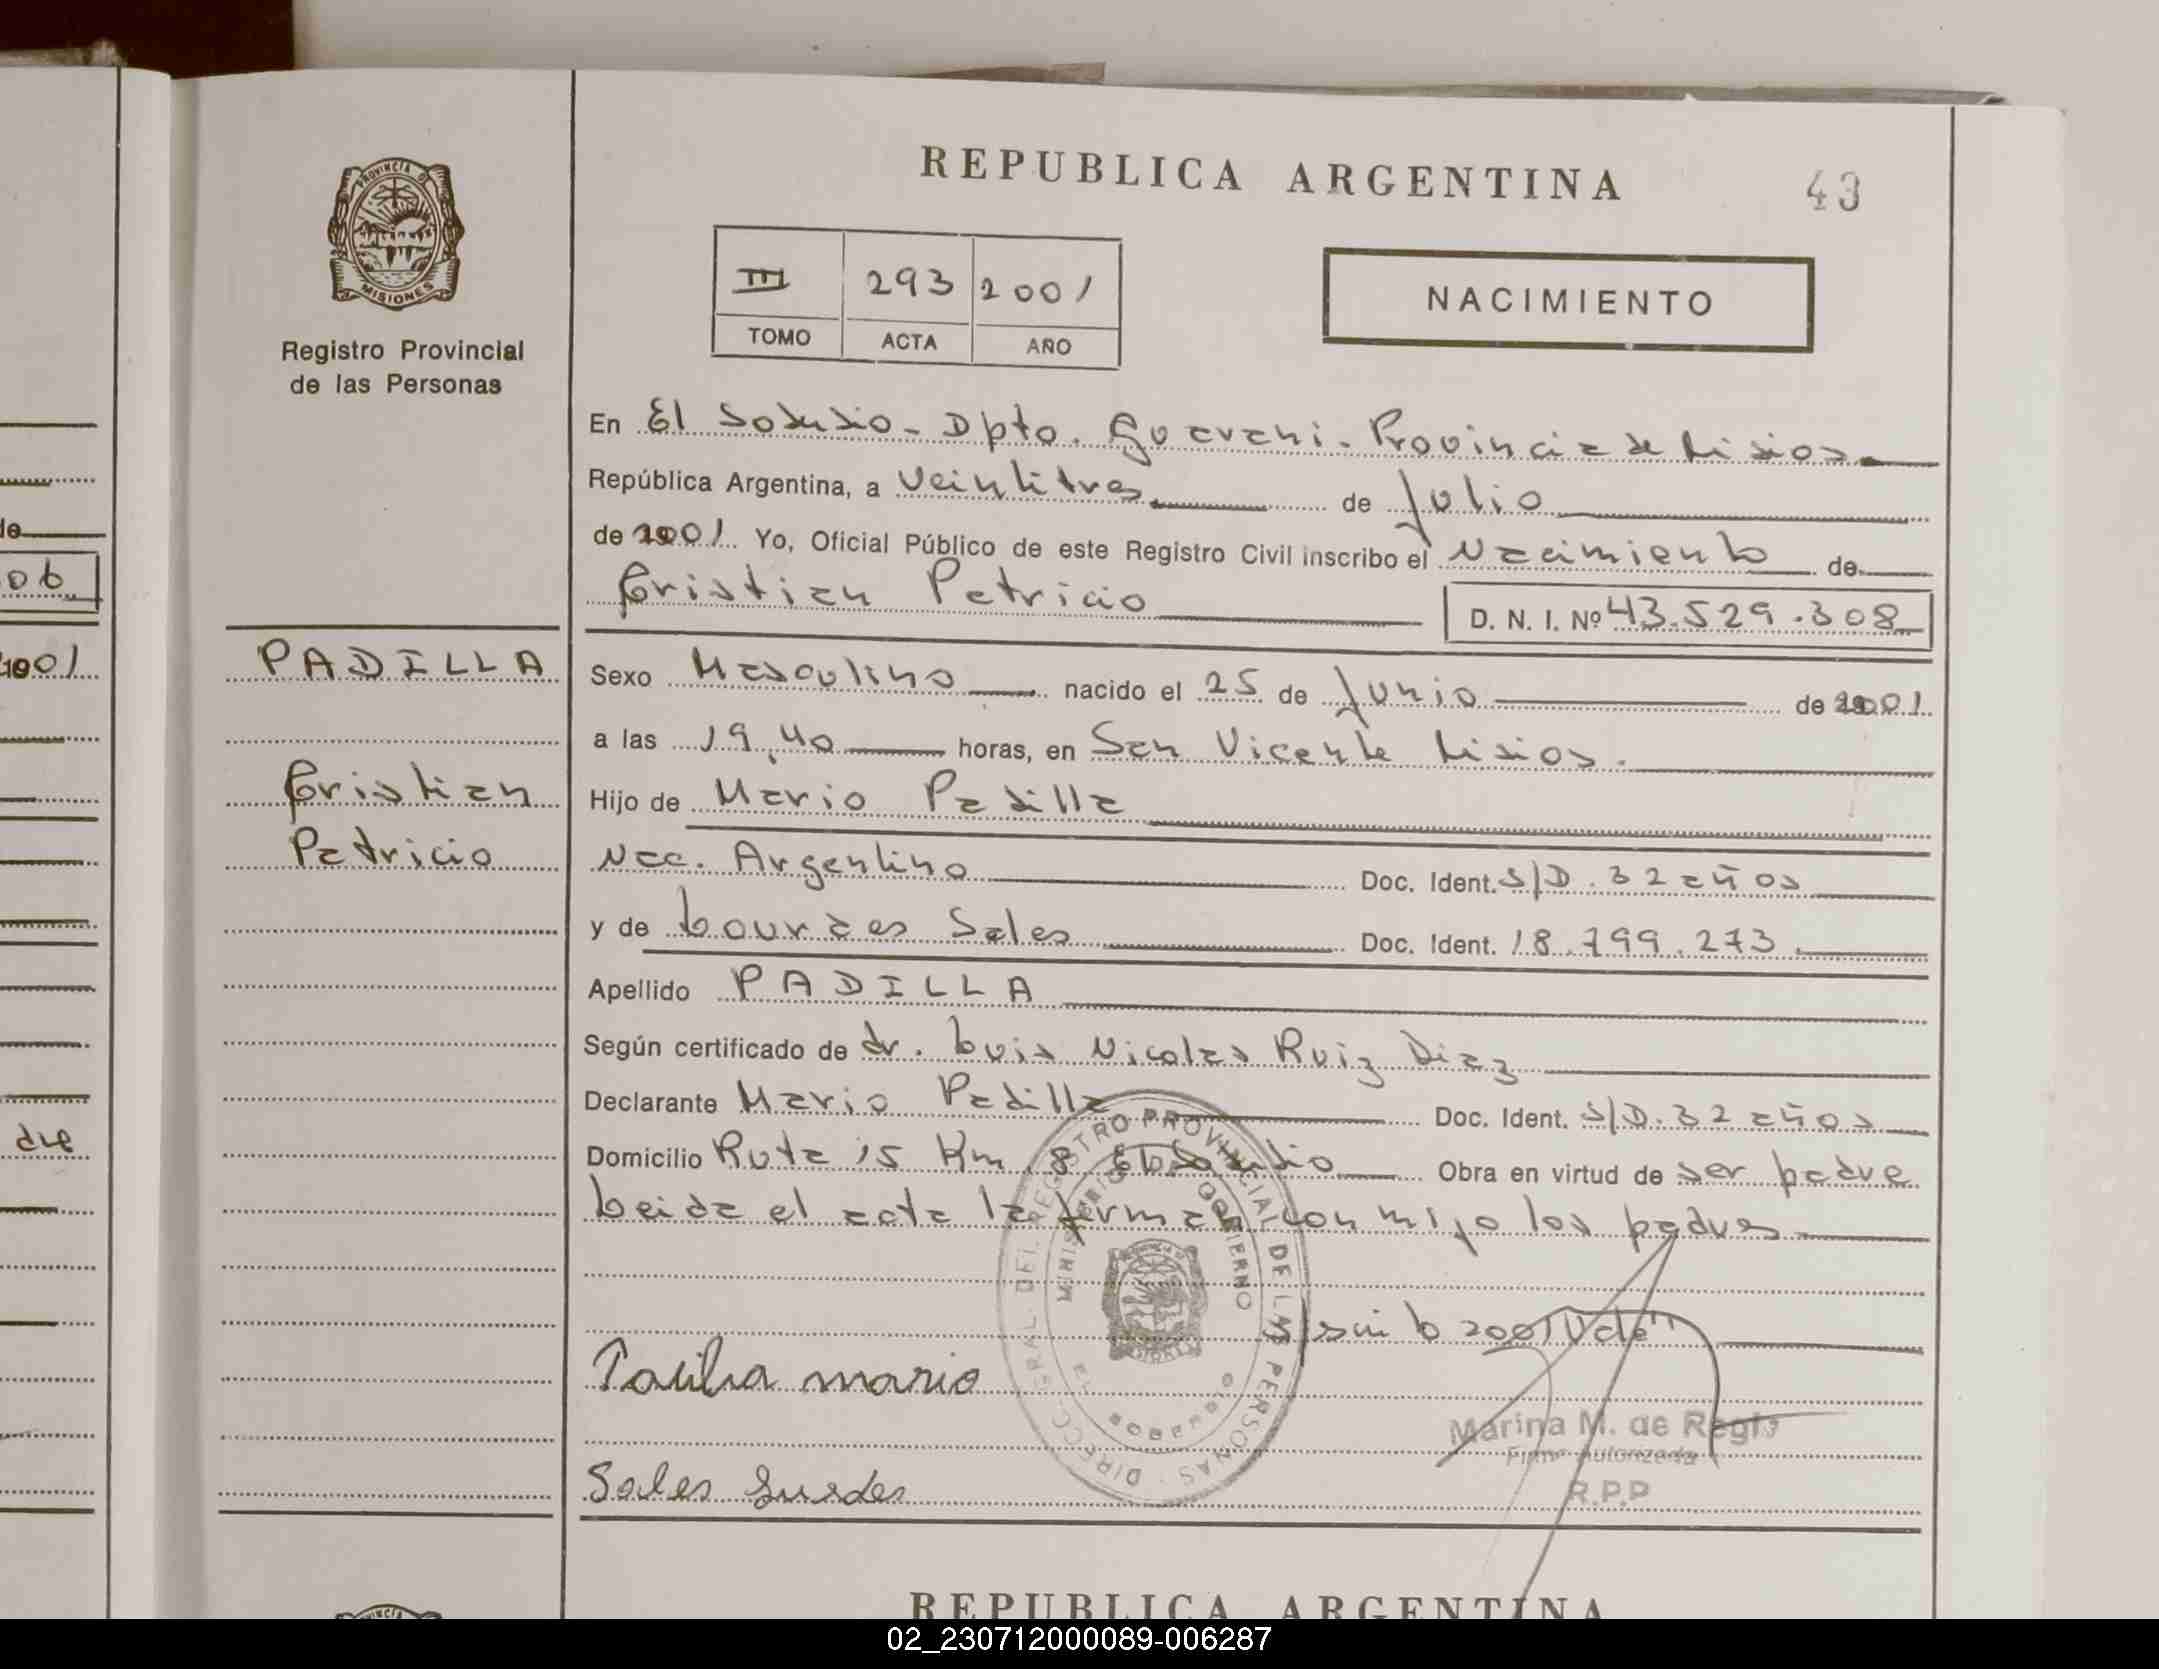 REPUBLICA ARGENTINA
43
PROVINCIA DE
MISIONES
Registro Provincial
de las Personas
III 293 2001
TOMO ACTA AÑO
NACIMIENTO
En El Soberbio - Dpto. Guarani - Provincia de Misiones
República Argentina, a Veintitres de Julio
de 2001 Yo, Oficial Público de este Registro Civil inscribo el Nacimiento de
Cristian Patricio D. N. I. Nº 43.529.308
PADILLA
Cristian
Patricio
Sexo Masculino nacido el 25 de Junio de 2001
a las 19,40 horas, en San Vicente Misiones.
Hijo de Mario Padilla
Nac. Argentino Doc. Ident. S/D. 32 años
y de Lourdes Sales Doc. Ident. 18.799.273.
Apellido PADILLA
Según certificado de dr. Luis Nicolas Ruiz Diaz
Declarante Mario Padilla Doc. Ident. S/D. 32 años
Domicilio Ruta 15 Km. 8 El Soberbio Obra en virtud de ser padre
Leida el acta la firman conmigo los padres
2001 Vale
Padilla mario
Sales Lurdes
DIRECC. GRAL. DEL REGISTRO PROVINCIAL DE LAS PERSONAS
MINISTERIO DE GOBIERNO
EL SOBERBIO
Marina M. de Regis
Firma Autorizada
R.P.P
ob
2001
de
REPUBLICA ARGENTINA
02_230712000089-006287